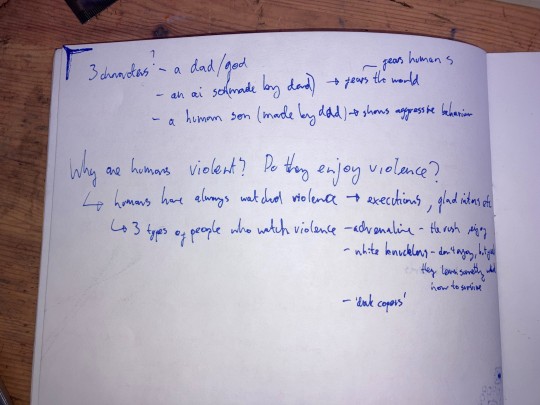 3 characters? - a dad/god
fears humans
- an ai son (made by dad) → fears the world
- a human son (made by dad) → shows aggressive behavior
Why are humans violent? Do they enjoy violence?
↳ humans have always watched violence → executions, gladiators etc
↳ 3 types of people who watch violence - adrenaline - the rush, enjoy
- white knucklers - don't enjoy, but
they learn something
how to survive
- 'dark copers'